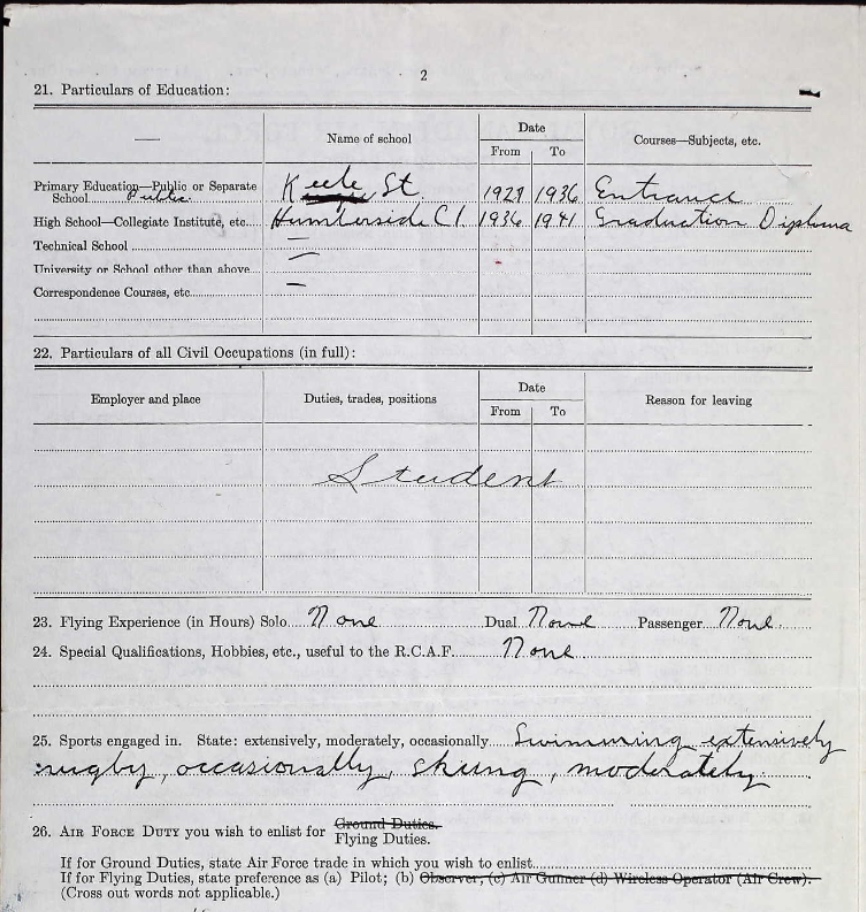 2
21. Particulars of Education:
— Name of school Date Courses—Subjects, etc.
From To
Primary Education—Public or Separate Keele St. 1929 1936 Entrance
School Public
High School—Collegiate Institute, etc. Humberside C I 1936 1941 Graduation Diploma
Technical School —
University or School other than above —
Correspondence Courses, etc. —
22. Particulars of all Civil Occupations (in full):
Employer and place Duties, trades, positions Date Reason for leaving
From To
Student
23. Flying Experience (in Hours) Solo None Dual None Passenger None
24. Special Qualifications, Hobbies, etc., useful to the R.C.A.F. None
25. Sports engaged in. State: extensively, moderately, occasionally Swimming extensively
rugby, occasionally, skiing, moderately.
26. AIR FORCE DUTY you wish to enlist for Ground Duties.
Flying Duties.
If for Ground Duties, state Air Force trade in which you wish to enlist
If for Flying Duties, state preference as (a) Pilot; (b) Observer, (c) Air Gunner (d) Wireless Operator (Air Crew).
(Cross out words not applicable.)